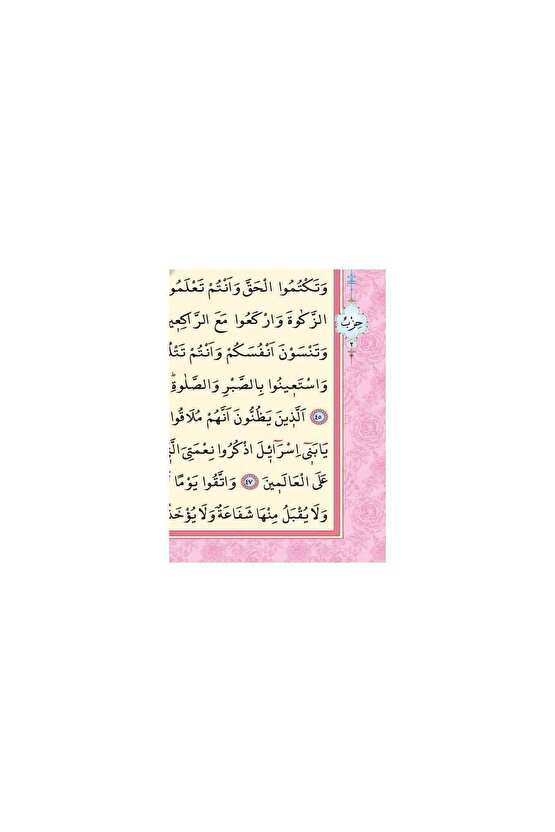 وَتَكْتُمُوا الْحَقَّ وَاَنْتُمْ تَعْلَمُو
الزَّكٰوةَ وَارْكَعُوا مَعَ الرَّاكِعٖي
وَتَنْسَوْنَ اَنْفُسَكُمْ وَاَنْتُمْ تَتْلُ
وَاسْتَعٖينُوا بِالصَّبْرِ وَالصَّلٰوةِ
٤٥ اَلَّذٖينَ يَظُنُّونَ اَنَّهُمْ مُلَاقُوا
يَا بَنٖٓى اِسْرَٓائٖلَ اذْكُرُوا نِعْمَتِىَ الَّتٖ
عَلَى الْعَالَمٖينَ ٤٧ وَاتَّقُوا يَوْمًا
وَلَا يُقْبَلُ مِنْهَا شَفَاعَةٌ وَلَا يُؤْخَذُ
حِزْبْ
٢